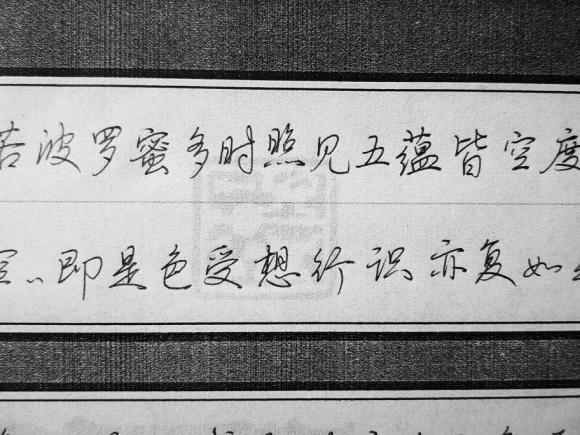 若波罗蜜多时照见五蕴皆空度
空〻即是色受想行识亦复如